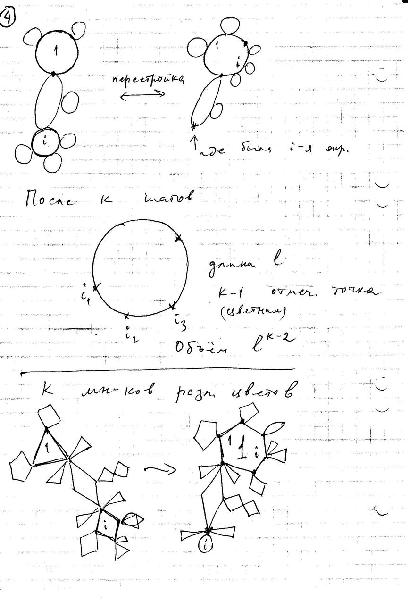 4
1
i
перестройка
i
где была i-я окр.
После k шагов
длина l
k-1 отмеч. точка
(цветная)
i₁
i₂
i₃
Объём l^{k-2}
k мн-ков разн. цветов
1
i
1 1 i
i